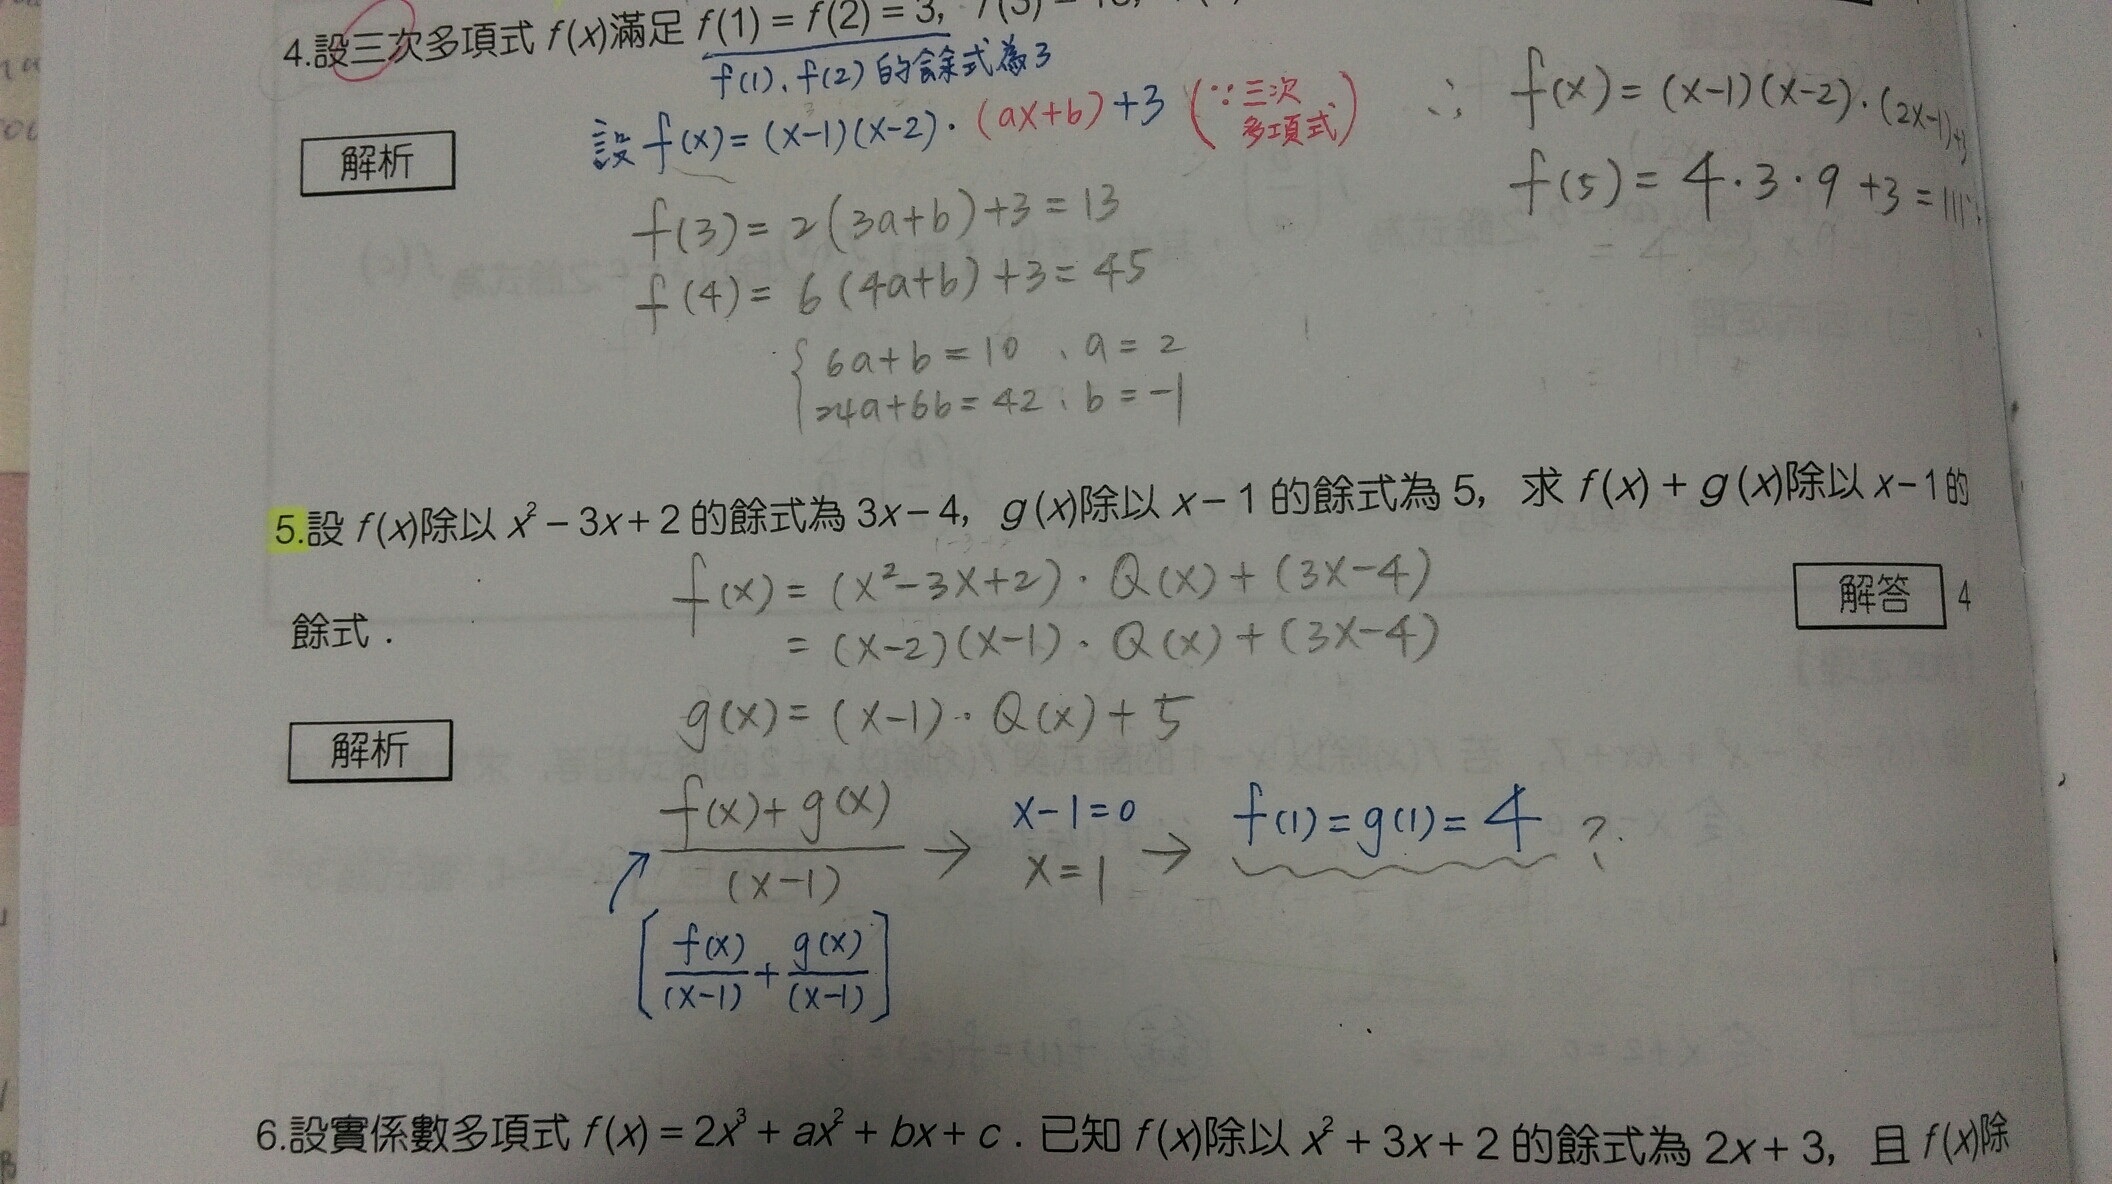 4.設三次多項式 f(x)滿足 f(1) = f(2) = 3,
f(1)、f(2) 的餘式為3
設 f(x) = (x-1)(x-2)·(ax+b)+3 (∵三次多項式)
f(3) = 2(3a+b)+3 = 13
f(4) = 6(4a+b)+3 = 45
{ 6a+b = 10 、a = 2
24a+6b = 42 ; b = -1
∴ f(x) = (x-1)(x-2)·(2x-1)+3
f(5) = 4·3·9+3 = 111
解析
5.設 f(x)除以 x² − 3x + 2 的餘式為 3x − 4, g(x)除以 x − 1 的餘式為 5, 求 f(x) + g(x)除以 x − 1 的
餘式.
解答 4
解析
f(x) = (x²-3x+2)·Q(x)+(3x-4)
= (x-2)(x-1)·Q(x)+(3x-4)
g(x) = (x-1)·Q(x)+5
f(x)+g(x) / (x-1) → x-1=0 x=1 → f(1)=g(1)=4 ?
[f(x)/(x-1) + g(x)/(x-1)]
6.設實係數多項式 f(x) = 2x³ + ax² + bx + c . 已知 f(x)除以 x² + 3x + 2 的餘式為 2x + 3, 且 f(x)除